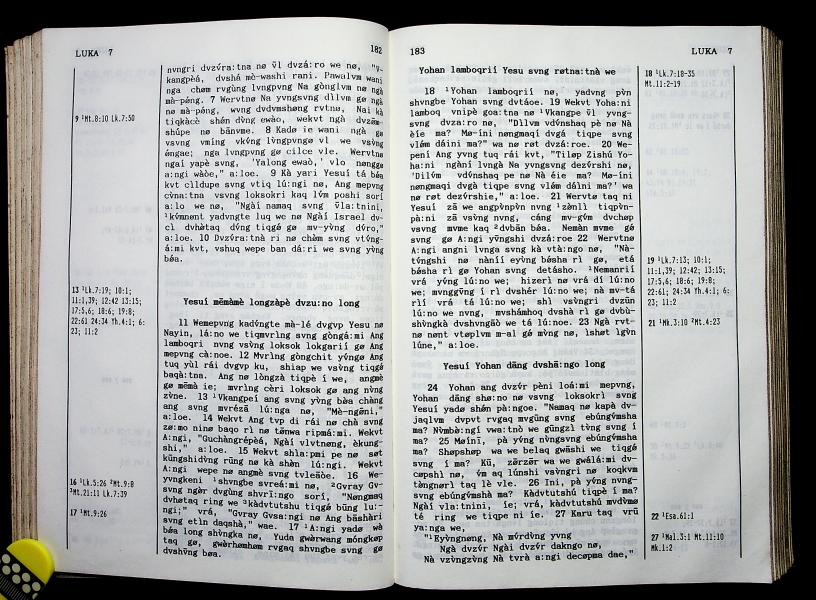 LUKA 7
182
nvngri dvzv́ra:tna nø v̄l dvzá:ro we nø, "V-
kangpèá, dvshá mè-washì rani. Pawalvm wani
nga chøm rvgùng lvngpvng Na gònglvm nø ngà
mà-péng. 7 Wervtnø Na yvngsvng dìlvm gø ngà
nø mà-péng, wvng dvdvmshøng rvtnø, Nai kà
tiqkàcè shén dv̀ng ewào, wekvt ngà dvzǣm-
shúpe nø bǣnvme. 8 Kadø ìe wani ngà gø
vsvng vming vkv́ng lvngpvngø vl we vsv̀ng
éngae; nga lvngpvng gø cilce vle. Wervtnø
ngaí yapè svng, 'Yalong ewaò,' vlo nønggø
a:ngì wàòe," a:loe. 9 Kà yari Yesuí tá béa
kvt cìldupe svng vtìq lú:ngì nø, Ang mepvng
cv̀na:tna vsvng loksokri kaq lv́m poshì sorì
a:lo we nø, "Ngàí namaq svng v̄la:tnìnì,
¹kv́mnønt yadvngte luq we nø Ngàí Israel dv-
cl dvhètaq dv́ng tiqgé gø mv-yv̀ng dv́ro,"
a:loe. 10 Dvzv́ra:tnà rì nø chèm svng vtv́ng-
á:mì kvt, vshuq wepe ban dá:ri we svng yv̀ng
béa.
Yesuí mēmàmè longzàpè dvzu:no long
11 Wemepvng kadv́ngte mà-lé dvgvp Yesu nø
Nayin, lá:no we tiqmvrìng svng gòngá:mì Ang
lamborì nvng vsv̀ng loksok lokgarìí gø Ang
mepvng cà:noe. 12 Mvrìng gòngchit yv́ngø Ang
tuq yùl ráì dvgvp ku, shiap we vsv̀ng tiqgé
baqà:tna. Ang nø lòngzà tiqpè í we, angmè
gø mēmà íe; mvrìng cèrì loksok gø ang nv̀ng
zv̀ne. 13 ¹Vkangpeí ang svng yv̀ng bèa chàng
ang svng mvrézā lú:nga nø, "Mè-ngǣnì,"
a:loe. 14 Wekvt Ang tvp dì ráì nø chà svng
zø:mo nìnø baqo rì nø tǣnwa rìpmá:mì. Wekvt
A:ngì, "Guchàngrépèá, Ngàí vlvtnøng, èkung-
shì," a:loe. 15 Wekvt shla:pmì pe nø søt
kūngshìdv̀ng rùng nø kà shèn lú:ngì. Wekvt
A:ngì wepe nø angmè svng tvleāòe. 16 We-
yvngkenì ¹shvngbe svreá:mì nø, ²Gvray Gv-
svng ngø̀r dvgùng shvrī:ngo sorì, "Nøngmaq
dvhetaq ring we ³kàdvtutshu tiqgé bùng lu:-
ngì;" vrá, "Gvray Gvsa:ngì nø Ang bǣshàrì
svng etln daqshà," wae. 17 ¹A:ngì yadø wà
béa long shv̀ngka nø, Yuda gwèrwang móngkøp
taq gø, gwèrhømhøm rvgaq shvngbe svng gø
dvshv̄ng bøa.
9 ¹Mt.8:10 Lk.7:50
13 ¹Lk.7:19; 10:1;
11:1,39; 12:42 13:15;
17:5,6; 18:6; 19:8;
22:61 24:34 Yh.4:1; 6:
23; 11:2
16 ¹Lk.5:26 ²Mt.9:8
³Mt.21:11 Lk.7:39
17 ¹Mt.9:26
183
LUKA 7
Yohan lamboqrìí Yesu svng røtna:tnà we
18 ¹Yohan lamboqrìí nø, yadvng pv̀n
shvngbe Yohan svng dvtáoe. 19 Wekvt Yoha:nì
lamboq vnìpè goa:tna nø ¹Vkangpe v̄l yvng-
svng dvza:ro nø, "Dìlvm vdv́nshaq pè nø Nà
èíe ma? Mø-ínì nøngmaqí dvgá tiqpe svng
vlám dáìnì ma?" wa nø røt dezá:roe. 20 We-
pènì Ang yvng tuq ráì kvt, "Tìløp Zìshú Yo-
ha:nì ngànì lvngà Na yvngsvng dezv́rshì nø,
'Dìlvm vdv́nshaq pè nø Nà éìe ma? Mø-ínì
nøngmaqí dvgà tiqpe svng vlám dáìnì ma?' wa
nø røt dezv́rshìe," a:loe. 21 Wervtø taq nì
Yesuí zā we angpv̀npv̀n nvng ¹zènlì tiqpv̀n-
pà:nì zā vsv̀ng nvng, cáng mv-gv́m dvchøp
vsvng mvme kaq ²dvbān béa. Nemàn mvme gé
svng gø A:ngì yv̄ngshì dvzá:roe 22 Wervtnø
A:ngì angnì lvnga svng kà vtà:ngo nø, "Nà-
tv́ngshì nø nànìí eyv̀ng bésha rì gø, etá
bésha rì gø Yohan svng detásho. ¹Nemanrìí
vrá yv́ng lú:no we; hìzerì nø vrá dí lú:no
we; mvnggv̄ng í rì dvshér lú:no we; nà mv-tá
rìí vrá tá lú:no we; shì vsv̀ngrì dvzūn
lú:no we nvng, mvshámhoq dvshà rì gø dvbù-
shv̀ngkà dvshvngāò we tá lú:noe. 23 Ngà rvt-
nø nønt vtøplvm m-al gé mv̀ng nø, lshøt lgv́n
lúne," a:loe.
Yesuí Yohan dāng dvshā:ngo long
24 Yohan ang dzv́r pènì loá:mì mepvng,
Yohan dāng shø:no nø vsvng loksokrì svng
Yesuí yadø shén pà:ngoe. "Namaq nø kapà dv-
jaqlvm dvpvt rvgaq mvgùng svng ebúngv́msha
ma? Nv̀mbè:ngì vwá:tnò we gūngzì tv̀ng svng í
ma? 25 Møínī, pà yv́ng nìvngsvng ebúngv́msha
ma? Shøpshøp wa we belaq gwāshì we tiqgé
svng í ma? Kū, zērzēr wa we gwálá:mì dv-
cøpshì nø, v́m aq lúnshì vsv̀ngrì nø koqkvm
tèngnørì taq lè vle. 26 Ini, pà yv́ng nvng-
svng ebúngv́mhà ma? Kàdvtutshú tiqpè í ma?
Ngàí vla:tnìnì, íe; vrá, kàdvtutshú mvdv̀mø
té ring we tiqpe nì íe. 27 Karu taq vrū
ya:nga we,
"¹Eyv̀ngnøng, Nà mv́rdv̀ng yvng
Ngà dvzv́r Ngàí dvzv́r dakngo nø,
Nà vzv̀ngzv̀ng Nà tvrà a:ngì decøpma dae,"
18 ¹Lk.7:18-35
Mt.11:2-19
19 ¹Lk.7:13; 10:1;
11:1,39; 12:42; 13:15;
17:5,6; 18:6; 19:8;
22:61; 24:34 Yh.4:1; 6:
23; 11:2
21 ¹Mk.3:10 ²Mt.4:23
22 ¹Esa.61:1
27 ¹Mal.3:1 Mt.11:10
Mk.1:2